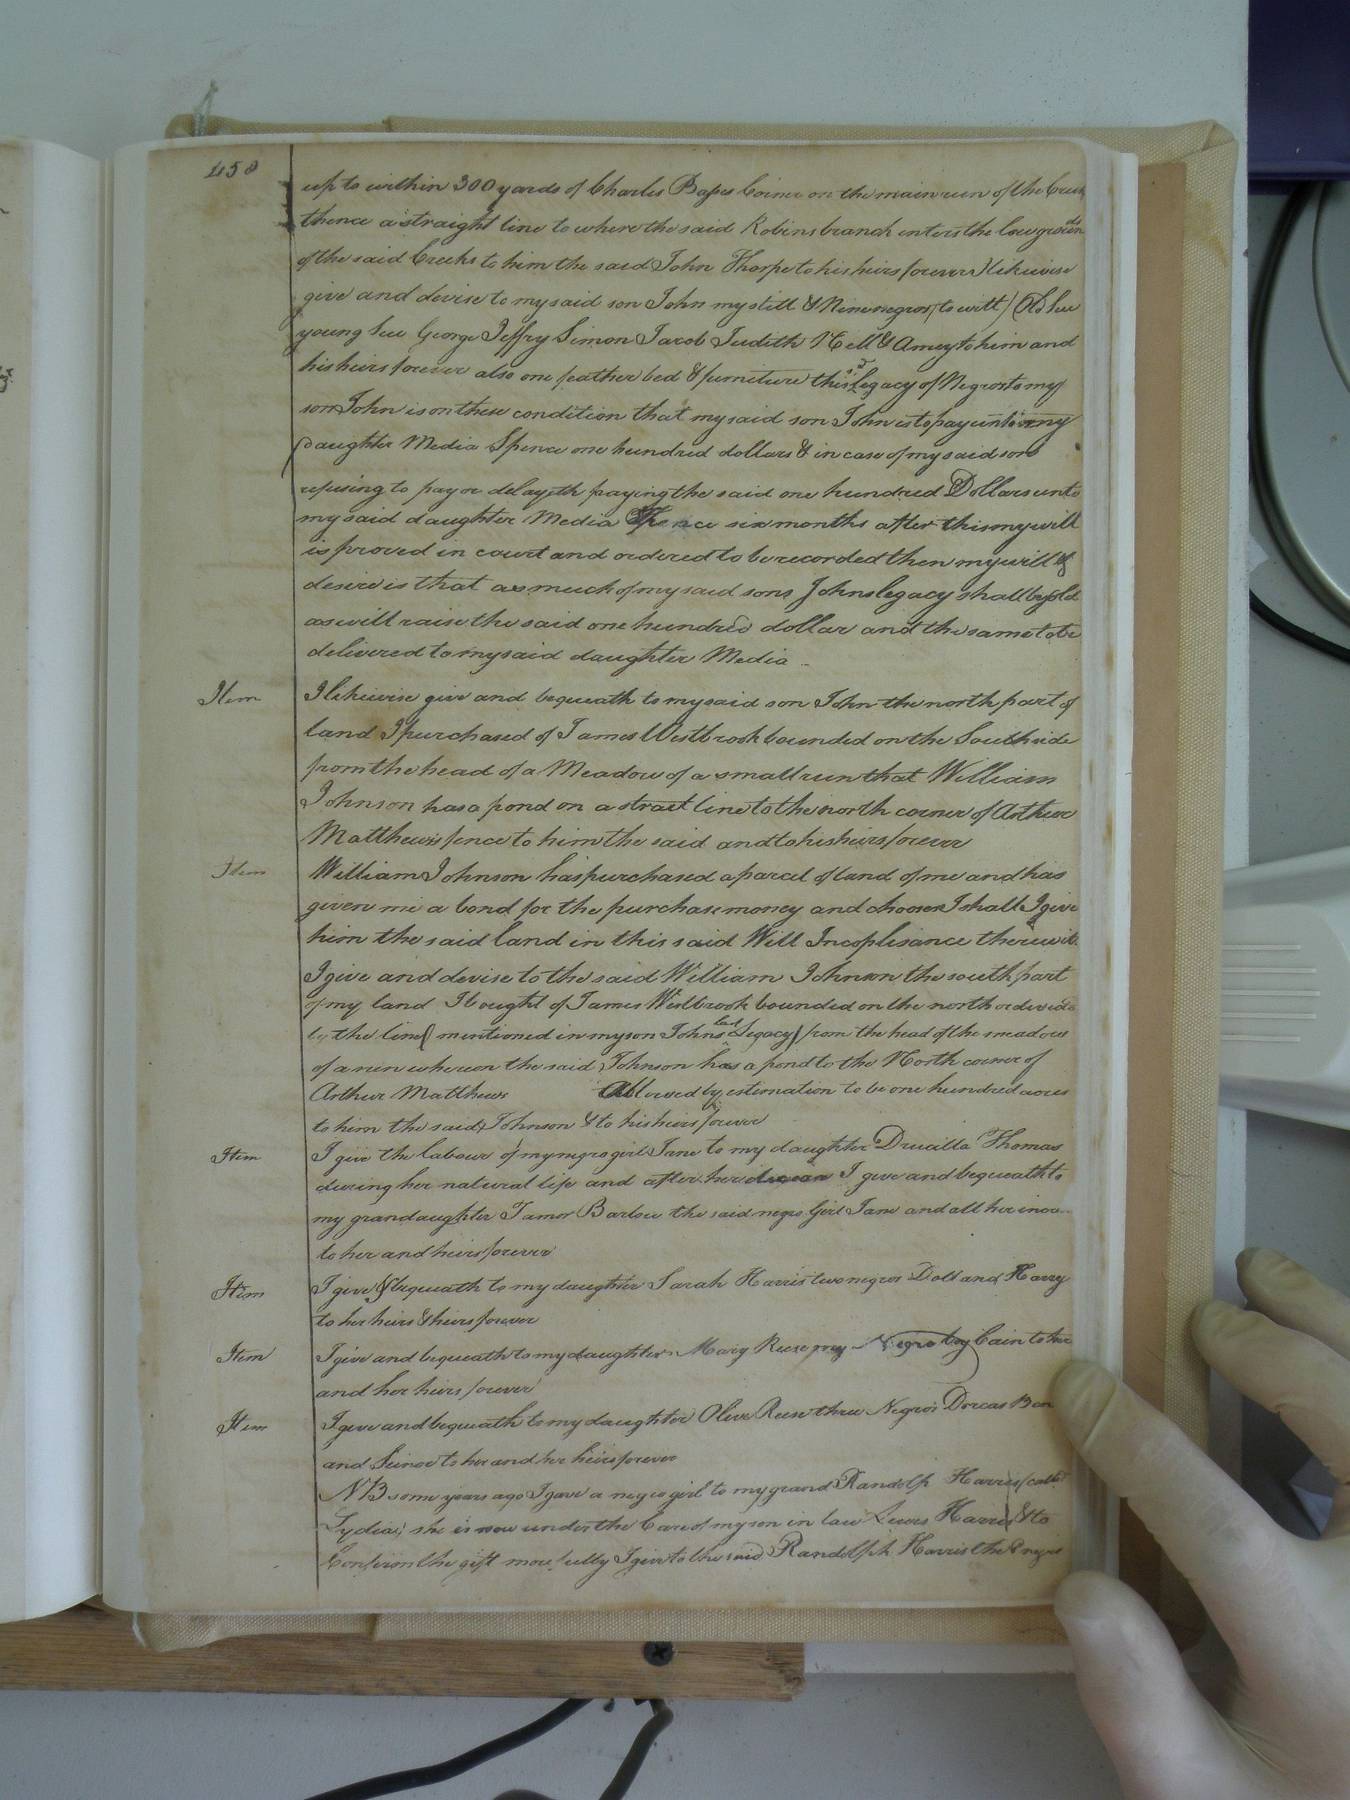 458
up to within 300 yards of Charles Bapes Corner on the main run of the Creek
thence a straight line to where the said Robins branch enters the low grounds
of the said Creeks to him the said John Thorpe to his heirs forever I likewise
give and devise to my said son John my still & Nine negros (to witt) Old Sue
young Sue George Jeffry Simon Jacob Judith Nell & Amey to him and
his heirs forever also one feather bed & furniture this Legacy of Negros to my
son John is on these condition that my said son John is to pay unto my
Daughter Media Spence one hundred dollars & in case of my said son
refusing to pay or delayeth paying the said one hundred Dollars unto
my said daughter Media Spence six months after this my will
is proved in court and ordered to be recorded then my will &
desire is that as much of my said sons Johns legacy shall be sold
as will raise the said one hundred dollar and the same to be
delivered to my said daughter Media
Item I likewise give and bequeath to my said son John the north part of
land I purchased of James Westbrook bounded on the South side
from the head of a Meadow of a small run that William
Johnson has a pond on a strait line to the north corner of Arthur
Matthews fence to him the said and to his heirs forever
Item William Johnson has purchased a parcel of land of me and has
given me a bond for the purchase money and chooses I shall give
him the said land in this said Will In coplisance therewith
I give and devise to the said William Johnson the south part
of my land I bought of James Westbrook bounded on the north
by the line (mentioned in my son Johns last Legacy) from the head of the meadow
of a run whereon the said Johnson has a pond to the North corner of
Arthur Matthews Allowed by estemation to be one hundred acres
to him the said Johnson & to his heirs forever
Item I give the labour of my negro girl Jane to my daughter Drucilla Thomas
during her natural life and after her I give and bequeath to
my grandaughter Tamor Barlow the said negro Girl Jane and all her
to her and heirs forever
Item I give & bequeath to my daughter Sarah Harris two negros Doll and Harry
to her heirs & heirs forever
Item I give and bequeath to my daughter Mary Reese my Negro boy Cain to her
and her heirs forever
Item I give and bequeath to my daughter Olive Reese three Negros Dorcas Ben
and to her and her heirs forever
NB some years ago I gave a negro girl to my grand Randolph Harris (call
Lydia) she is now under the Care of my son in law Lewis Harris & to
Confirm the gift more fully I give to the said Randolph Harris the negro